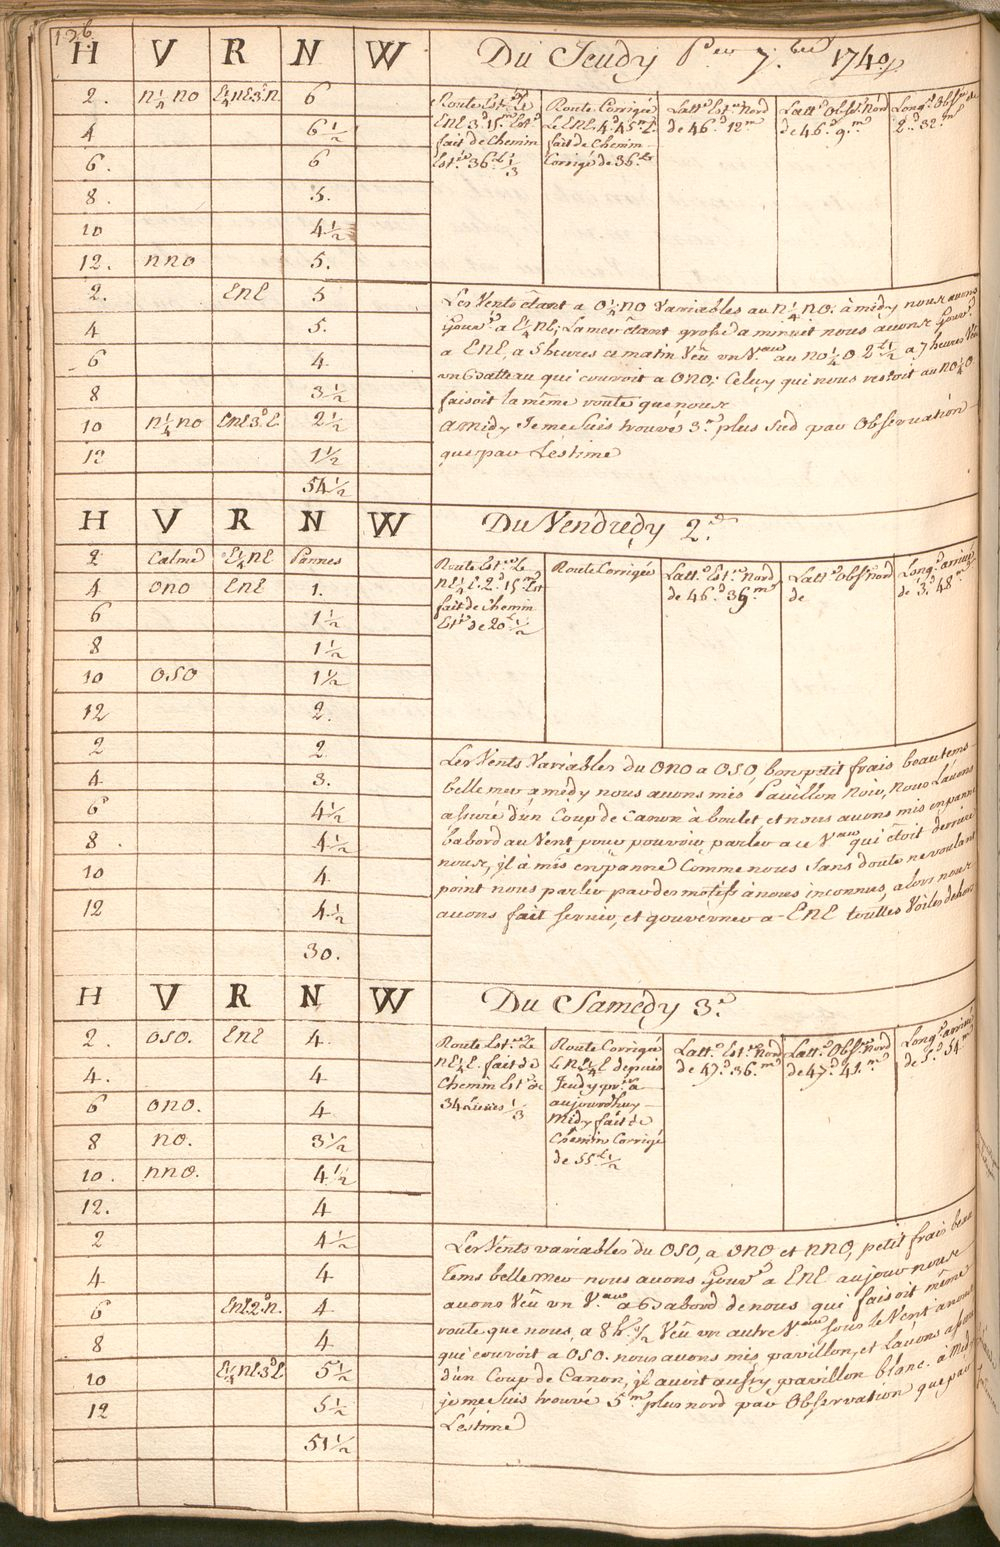 126
H V R N W Du Jeudy P.er 7.bre 1740
2. n¼no E¼nE3.dn. 6
4 6½
6. 6
8. 5.
10 4½
12. nno 5.
2. EnE 5
4 5.
6 4.
8 3½
10 n¼no EnE3.dE. 2½
12 1½
54½
Route Est.ée Le
EnE 3.d 15.m Est.d
fait de Chemin
Est.é 36.L ⅓
Route Corrigée
Le EnE 4.d 45.m E.
fait de Chemin
Corrigé de 36.L
Latt.e Est.ée Nord
de 46.d 12.m
Latt.e Obser. Nord
de 46.d 9.m
Long.e Obser. de
2.d 32.m
Les Vents étant a O¼no Variables au n¼no. à midy nous avons
Gouv.é a E¼nE; La mer étant grosse a minuit nous avons Gouv.é
a EnE, a 5 heures ce matin Veû vn V.au au no¼O 2.L½ a 7 heures Veû
vn Batteau qui couroit a Ono; Celuy qui nous restoit au no¼O
faisoit la même route que nous
amidy Je me suis trouvé 3.m plus Sud par Observation
que par L'estime
H V R N W Du Vendredy 2.d
2 Calme E¼nE Pannes
4 ono EnE 1.
6 1½
8 1½
10 oso 1½
12 2.
2 2
4 3.
6 4½
8. 4½
10 4
12 4½
30.
Route Est.ée Le
nE¼E. 2.d 15.m Est
fait de Chemin
Est.é de 20.L½
Route Corrigée
Latt.e Est.ée Nord
de 46.d 39.m
Latt.e Obs.ée Nord
de
Long.e arrivé
de 3.d 48.m
Les Vents Variables du Ono a OSO, bon petit frais beau tems
belle mer a médy nous avons mis Pavillon Noir, nous L'avons
assuré d'un Coup de Canon à boulet et nous avons mis en panne
babord au Vent pour pouvoir parler a ce V.au qui étoit derriere
nous, jl à mis en panne Comme nous Sans doute ne voulant
point nous parler par des motifs à nous inconnus, alors nous
avons fait servir, et gouverner a EnE touttes Voiles dehors
H V R N W Du Samedy 3.d
2. oso. EnE 4.
4. 4
6 ono. 4
8 no. 3½
10. nno. 4½
12. 4
2 4½
4 4
6 EnE2.dn. 4
8 4
10 E¼nE3.dE 5½
12 5½
51½
Route Est.ée Le
nE¼E. fait de
Chemin Est.é de
34 Lieües ⅓
Route Corrigée
Le nE¼E depuis
Jeudy pr.er a
aujourdhuy
Midy fait de
Chemin Corrigé
de 55.L½
Latt.e Est.ée Nord
de 47.d 36.m
Latt.e Obs.ée Nord
de 47.d 41.m
Long.e arrivé
de 5.d 54.m
Les Vents variables du OSO, a ONO et NNO, petit frais beau
Tems belle mer nous avons Gouv.é a EnE au jour nous
avons Veû vn V.au a Babord de nous qui faisoit même
route que nous, a 8 h.½ Veû vn autre V.au sous le Vent a nous
qui couroit a OSO. nous avons mis pavillon, et L'avons assuré
d'un Coup de Canon, jl avoit aussy pavillon blanc. à Midy
je me suis trouvé 5.m plus nord par Observation que par
L'estime